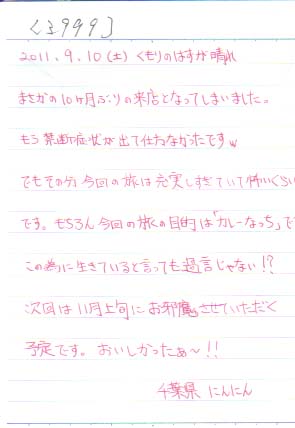 くヨ999〕
2011.9.10(土) くもりのはずが晴れ
まさかの10ヶ月ぶりの来店となってしまいました。
もう禁断症状が出て仕方なかったですw
でもその分今回の旅は充実しすぎていて怖いくらい
です。もちろん今回の旅の目的は「カレーなっち」で
この為に生きていると言っても過言じゃない!?
次回は11月上旬にお邪魔させていただく
予定です。おいしかったぁ〜!!
千葉県 にんにん